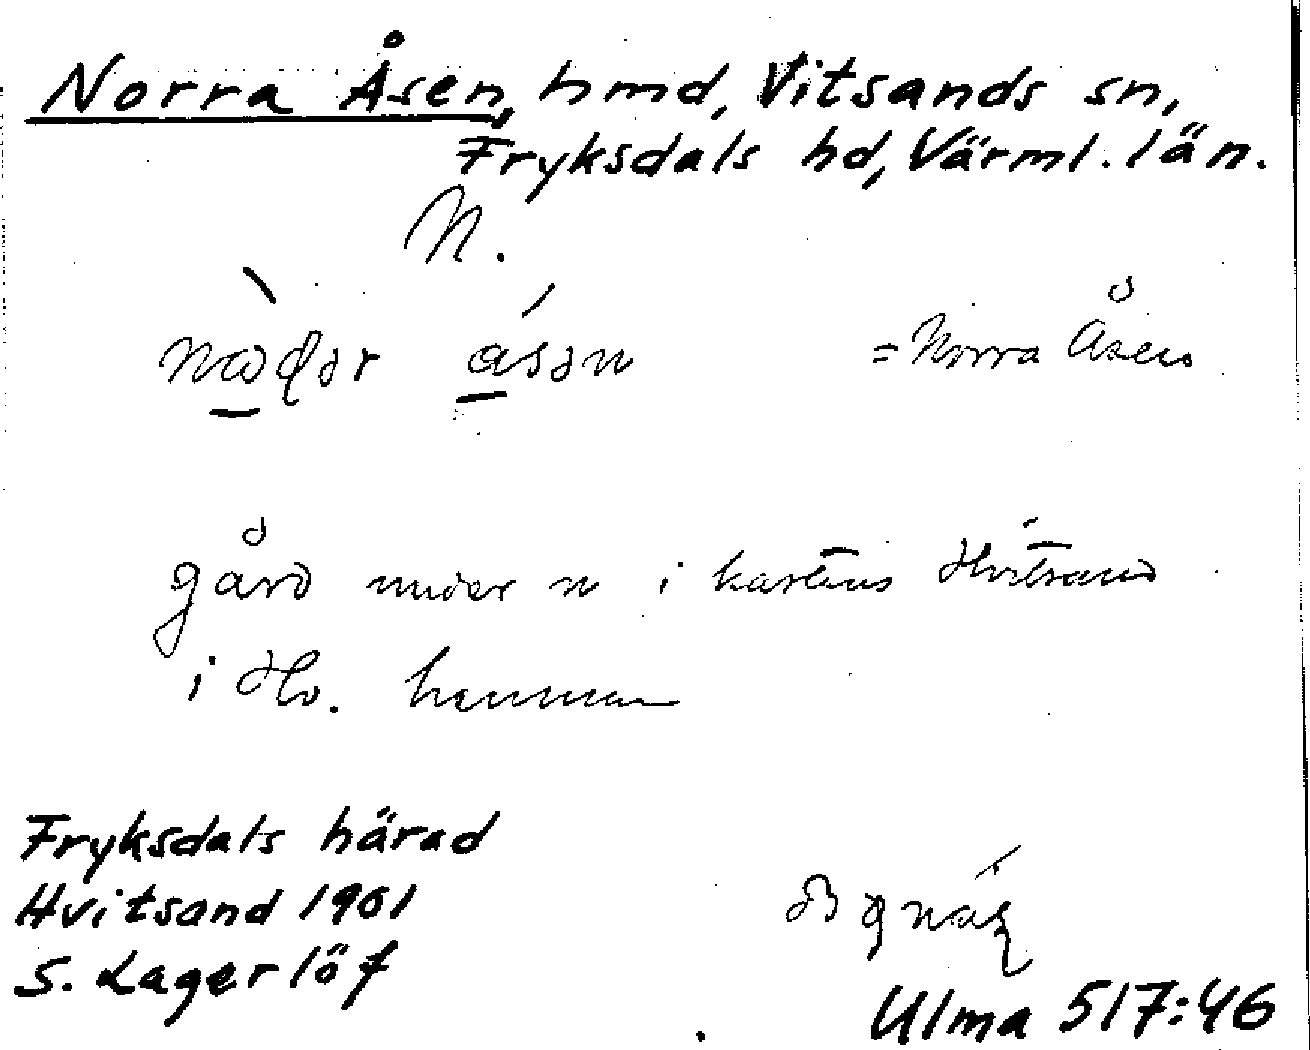 Norra Åsen, hmd, Vitsands sn,
Fryksdals hd, Värml. län.
N.
åsən = Norra Åsen
gård under n i kartans Hvitsand
i Hv. hemman
Fryksdals härad
Hvitsand 1901
S. Lagerlöf
Ulma 517:46